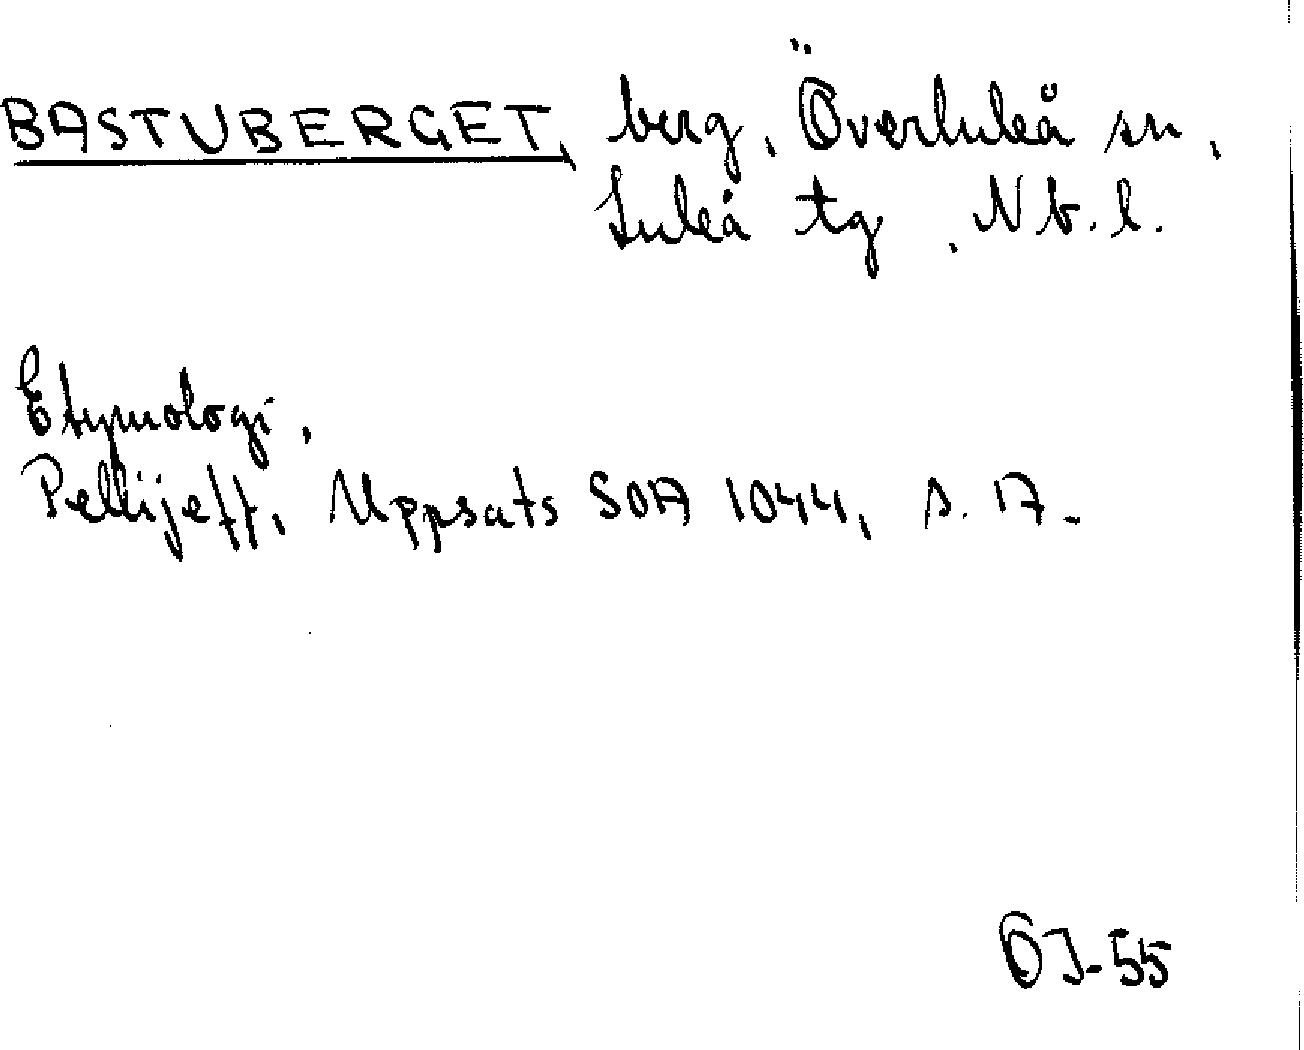 BASTUBERGET, berg, Överluleå sn,
Luleå tg, Nb. l.
Etymologi,
Pellijeff, Uppsats SOA 1044, s. 17.
OJ-55